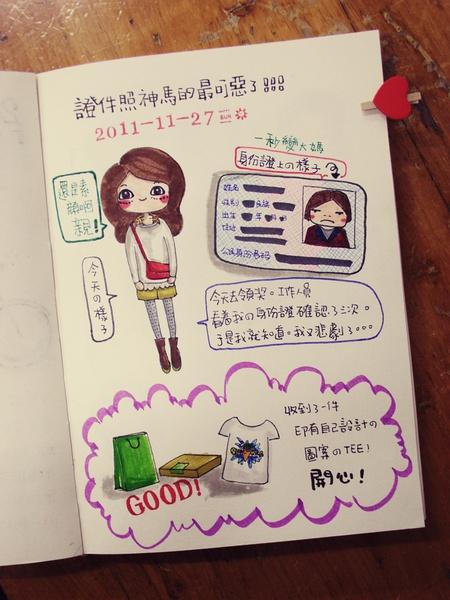 證件照神馬的最可惡了!!!
2011-11-27 SUN
一秒變大媽
身份證上の樣子
還是素
顏啊
親!
姓名
性別 民族
出生 年 月
住址
公民身份號碼
今天の樣子
今天去領奖。工作人員
看着我の身份證確認了三次。
于是我就知道。我又悲劇了。。。
收到了一件
印有自己設計の
圖案のTEE!
開心!
GOOD!